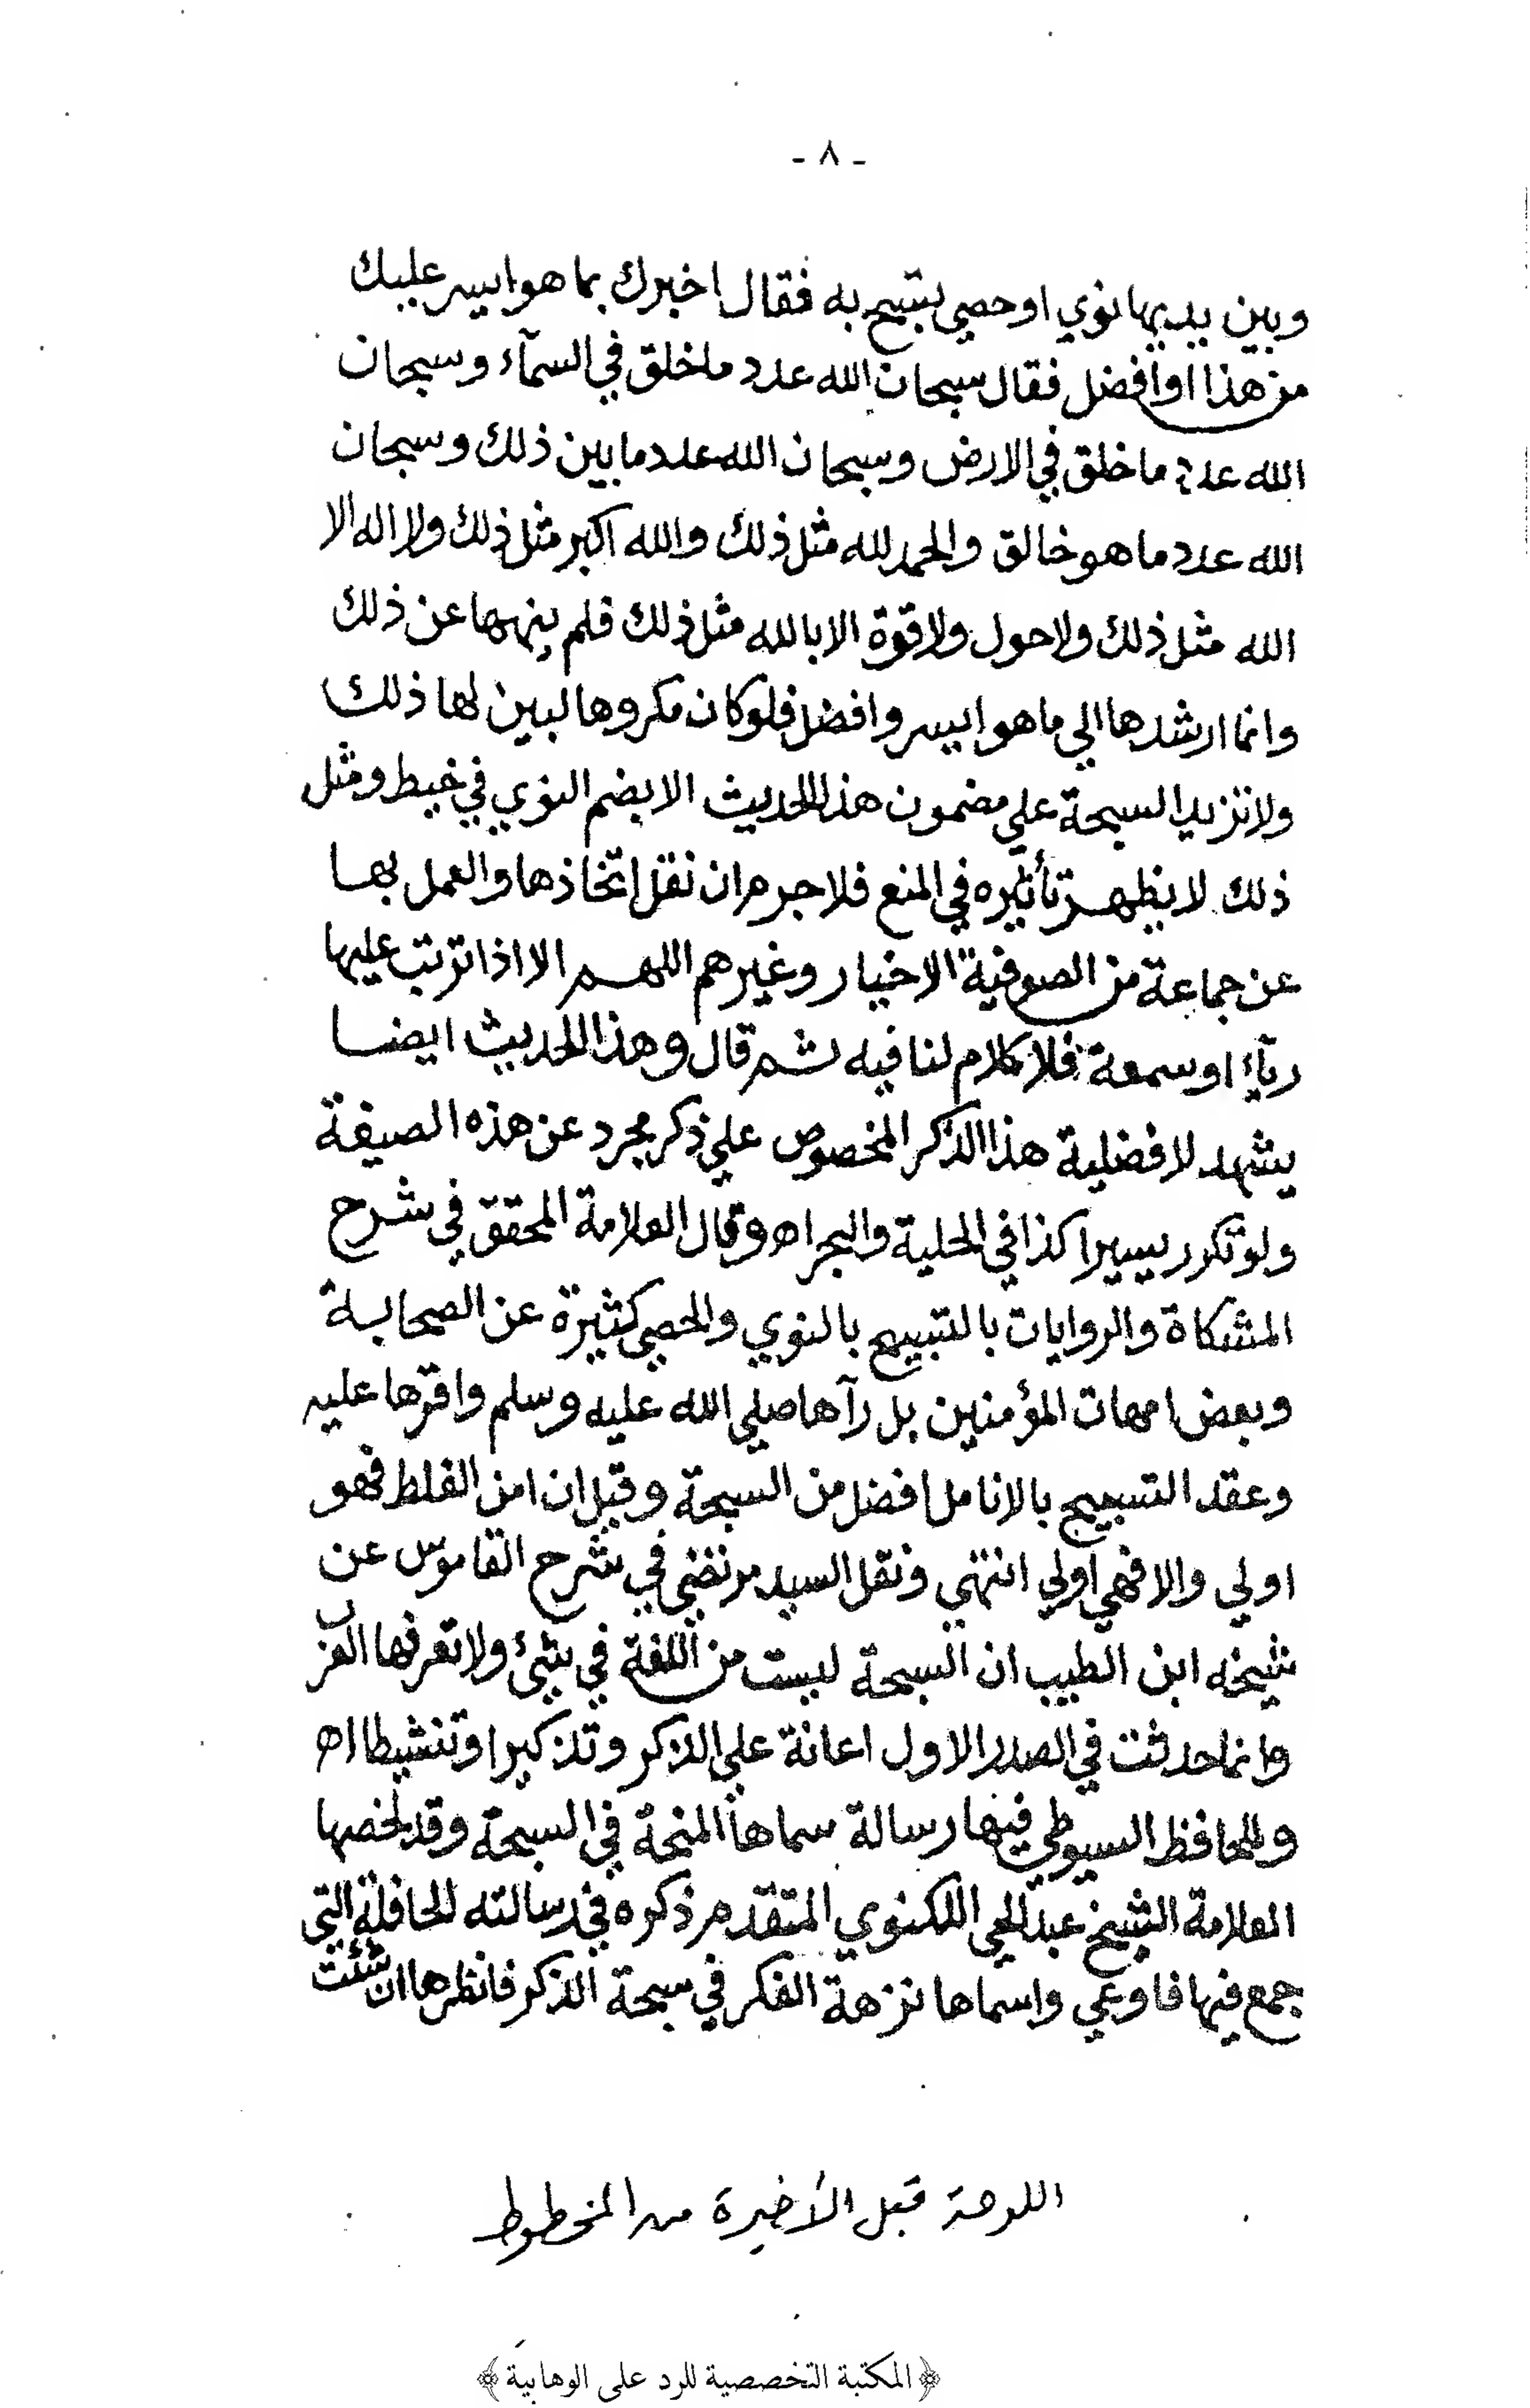 - ٨ -
وبين يديها نوي او حصي تسبح به فقال اخبرك بما هو ايسر عليك
من هذا او افضل فقال سبحان الله عدد ما خلق في السمآء وسبحان
الله عدد ما خلق في الارض وسبحان الله عدد ما بين ذلك وسبحان
الله عدد ما هو خالق والحمد لله مثل ذلك والله اكبر مثل ذلك ولا اله الا
الله مثل ذلك ولا حول ولا قوة الا بالله مثل ذلك فلم ينهها عن ذلك
وانما ارشدها الي ما هو ايسر وافضل فلو كان مكروها لبين لها ذلك
ولا تزيد السبحة علي مضمون هذا الحديث الا بضم النوي في خيط ومثل
ذلك لا يظهر تأثيره في المنع فلا جرم ان نقل اتخاذها والعمل بها
عن جماعة من الصوفية الاخيار وغيرهم اللهم الا اذا ترتب عليها
ريآء او سمعة فلا كلام لنا فيه ثم قال وهذا الحديث ايضا
يشهد لافضلية هذا الذكر المخصوص علي ذكر مجرد عن هذه الصيغة
ولو تكرر يسيرا كذا في الحلية والبحر اه وقال العلامة المحقق في شرح
المشكاة والروايات بالتسبيح بالنوي والحصي كثيرة عن الصحابة
وبعض امهات المؤمنين بل رآها صلي الله عليه وسلم واقرها عليه
وعقد التسبيح بالانامل افضل من السبحة وقيل ان امن الغلط فهو
اولي والا فهي اولي انتهي ونقل السيد مرتضي في شرح القاموس عن
شيخه ابن الطيب ان السبحة ليست من اللغة في شئ ولا تعرفها العرب
وانما حدثت في الصدر الاول اعانة علي الذكر وتذكيرا وتنشيطا اه
وللحافظ السيوطي فيها رسالة سماها المنحة في السبحة وقد لخصها
العلامة الشيخ عبد الحي اللكنوي المتقدم ذكره في رسالته الحافلة التي
جمع فيها فاوعي واسماها نزهة الفكر في سبحة الذكر فانظرها ان شئت
اللوحة قبل الأخيرة من المخطوط
﴿المكتبة التخصصية للرد على الوهابية﴾